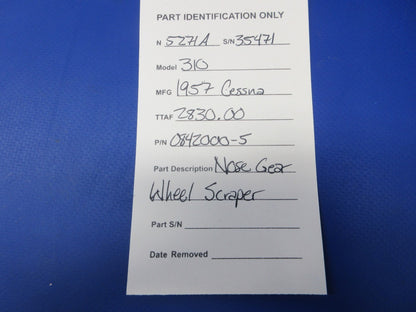 PART IDENTIFICATION ONLY
N 5271A S/N 35471
Model 310
MFG 1957 Cessna
TTAF 2830.00
P/N 0842000-5
Part Description Nose Gear
Wheel Scraper
Part S/N
Date Removed